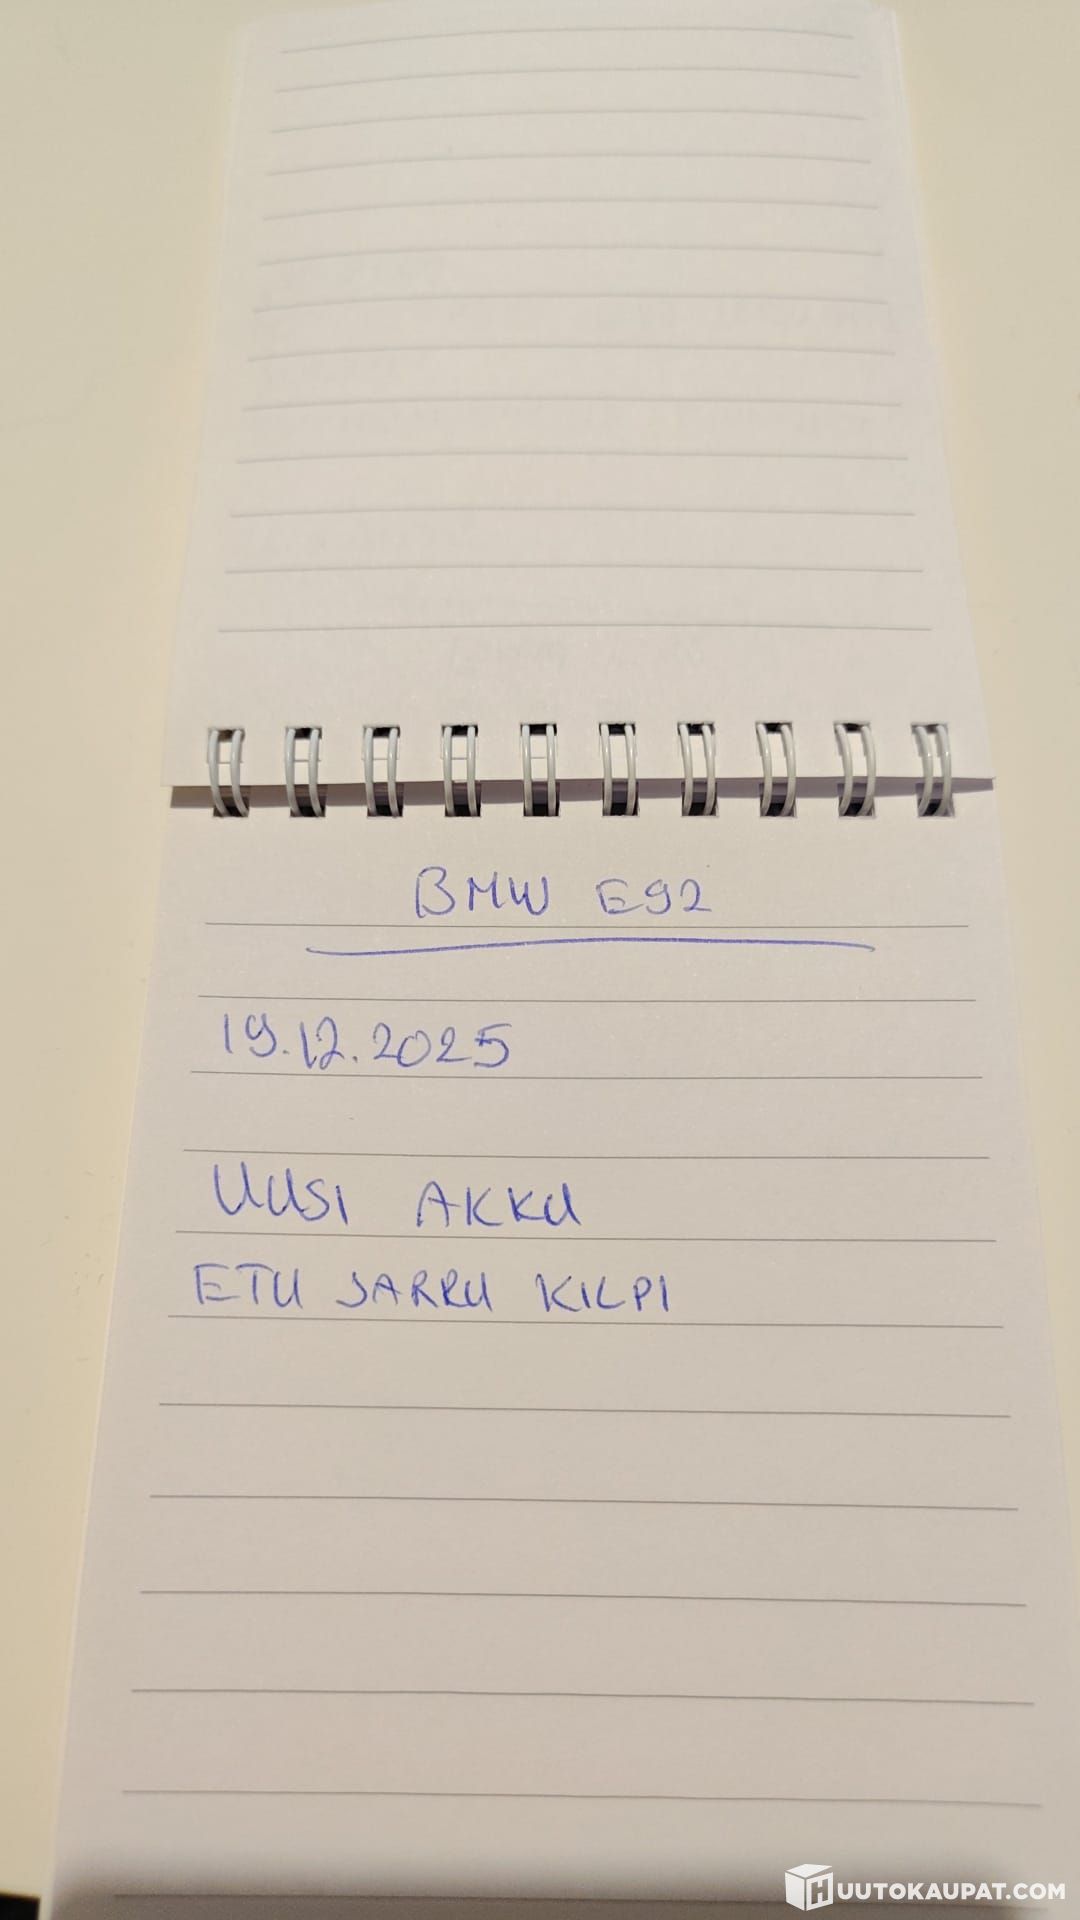 BMW E92
19.12.2025
UUSI AKKU
ETU JARRU KILPI
HUUTOKAUPAT.COM